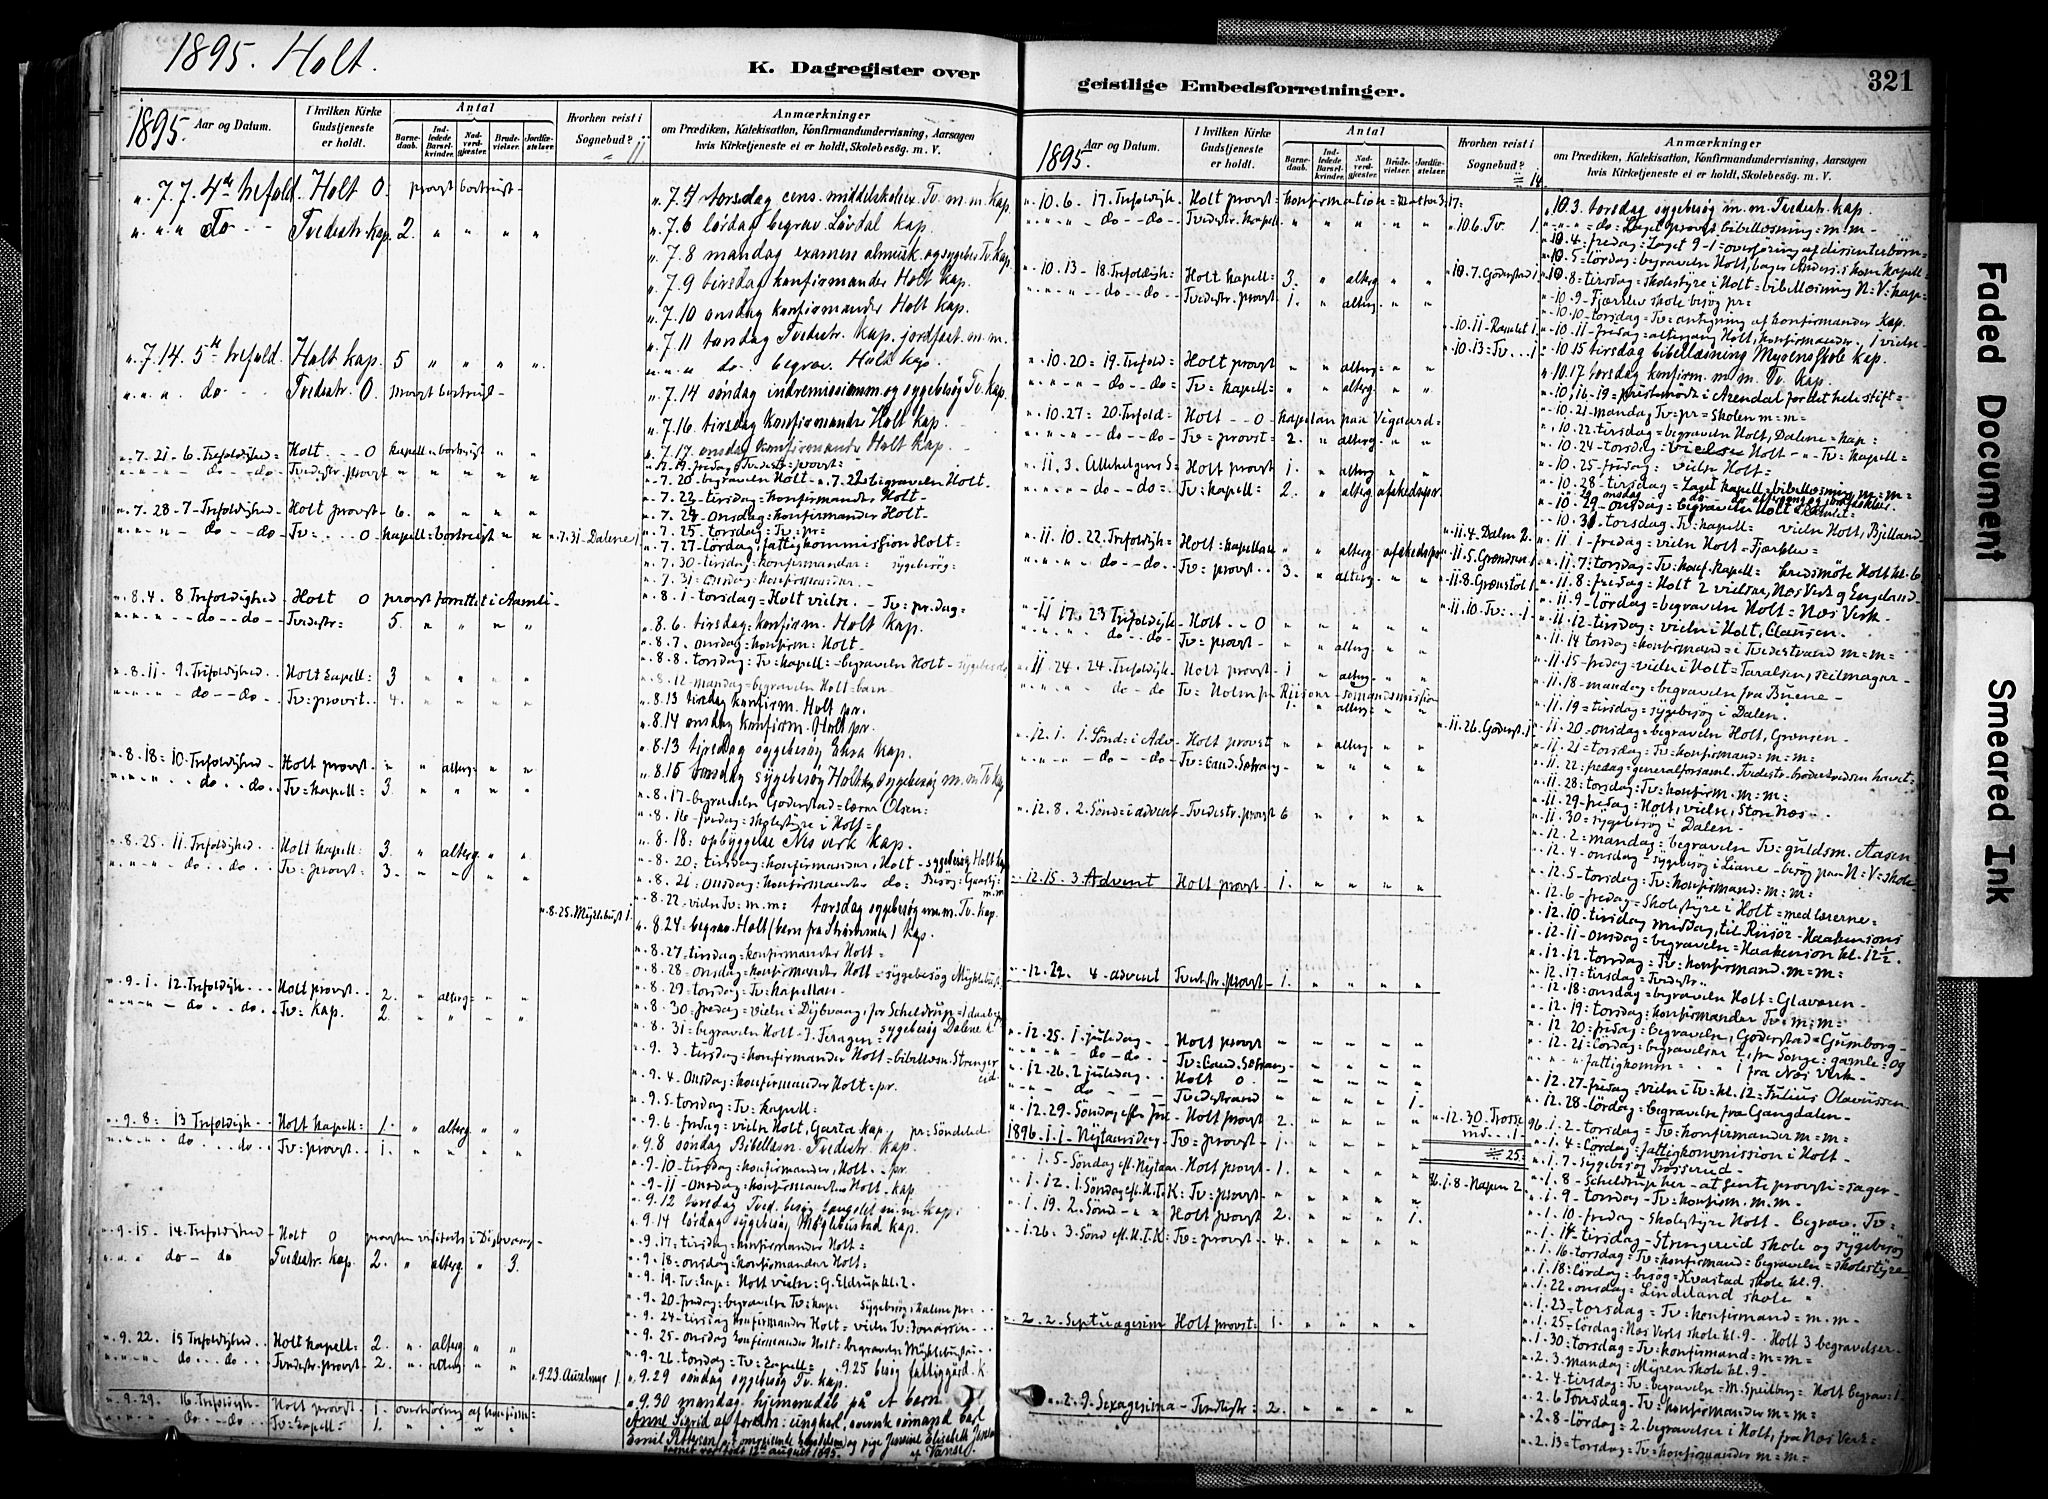 1895. Holt.
K. Dagregister over
geistlige Embedsforretninger.
321
1895.
Aar og Datum.
I hvilken Kirke Gudstjeneste er holdt.
Antal
Barnedaab.
Indledede Barselkvinder.
Nadverdgjester.
Brudevielser.
Jordfæstelser.
Hvorhen reist i Sognebud?
Anmærkninger
om Prædiken, Katekisation, Konfirmandundervisning, Aarsagen
hvis Kirketjeneste ei er holdt, Skolebesøg. m. V.
" 7.7. 4de trefold. Holt 0 provst bortreist -
" " " do - - Tvedestr. kap. 2. " " " "
" 7.14. 5te trefold. Holt kap. 5 " " " "
" " " do Tvedestr. 0. provst bortreist -
" 7. 21 - 6. Trefoldighed - Holt . . . 0 kapell = bortreist " "
" " " " do - - do - Tvedestr. provst " " " " "
" 7. 28 - 7 - Trefoldighed - Holt provst - 6. " " " "
" " " " do - - do - Tv: . . . . 0 kapell = bortreist " "
" 7.31 - Dalene 1.
" 8.4. 8 Trefoldighed - Holt 0 provst forrettet i Aamli -
" " " - do - - do - - Tvedestr= 5. " " " "
" 8.11 - 9. Trefoldighed . . Holt kapell= 3 " " " "
" " " - do - - do - Tv=provst. . 4. " " " "
" 8.18= 10. Trefoldighed - Holt provst - " " alterg= " "
" " " . do . . do. Tv=kapell= 3. " " " "
" 8.25. 11. Trefoldighed . . Holt kapell= 3. " alterg. " "
" " " . do . . do. Tv= provst= 3. " " " "
" 8.25. Myklebust 1.
" 9.1. 12. Trefoldigh . . . Holt provst . . 2. " alterg= " "
" " " . do . . do. Tv= kap. 2. " " " "
" 9.8: 13 Trefoldigh . . Holt kapell= 1. " alterg " "
" " " do . . . do Tv=provst . . 1. " " " "
" 9.15. 14. Trefoldighed - Holt 0 provsten visiterte i Dybvaag -
" " " do - do Tvedestr. kap. 2 " alterg " 3.
" 9.22. 15 Trefoldighed . . Holt kapell= 2. " alterg " "
" " " do . . . do. Tvedestr. provst - 2. " alterg " "
" 9.23. 1.
" 9.29. 16. Trefoldigh - Holt provst 1. overhøring af konfirm=
" " " do - - do. Tv. kapell= 1. " " " "
" 7.4 torsdag cens. middelskolex. Tv. m.m. kap.
" 7.6 lørdag begrav. Løvdal kap.
" 7.8 mandag examen almusk. og sygebes. Tv. kap.
" 7.9 tirsdag konfirmander Holt kap.
" 7.10 onsdag konfirmander Holt kap.
" 7.11 torsdag Tvedestr. kap. jordfæst. m.m.
" " " do . . begrav. Holt kap.
" 7.14 søndag indremissionsm. og sygebesøg Tv. kap.
" 7.16 tirsdag konfirmander Holt kap.
" 7.17 onsdag konfirmander Holt kap.
" 7.19. fredag Tvedestr=provst=
" 7.20 - begravelse Holt - " 7.22 begravelse Holt.
" 7. 23 - tirsdag=konfirmander Holt -
" 7. 24 - onsdag=konfirmander Holt -
" 7. 25 - torsdag= Tv= pr=
" 7. 27 - lördag, fattigkommission Holt=
" 7. 30 - tirsdag=konfirmander= sygebesøg=
" 7. 31 - onsdag=konfirmander. -
" 8. 1 - torsdag=Holt vielse. - Tv= pr. dag=
" 8.6. tirsdag=konfirm. Holt kap.
" 8.7. onsdag=konfirm= Holt.
" 8.8. torsdag=Tv=kapell= begravelse Holt -
" 8.12 - mandag=begravelse Holt=barn
" 8.13 tirsdag konfirm. Holt pr.
" 8.14 onsdag konfirm. Holt pr.
" 8.13 tirsdag sygebesøg kap.
" 8.15 torsdag sygebesøg Holt kap sygebesøg m.m Tv. kap
" 8.17 - begravelse Goderstad=lærer Olsen=
" 8.16 - fredag=skolestyre i Holt=
" 8.18: opbyggelse Næs verk kap.
" 8.20: tirsdag=konfirmander, Holt - sygebesøg Holt kap
" 8.21: onsdag=konfirmander do:
" 8.22 - vielse Tv= m.m= torsdag sygebesøg m.m. Tv. kap.
" 8.24= begrav. Holt (barn fra Strømmen) kap.
" 8.27 - tirsdag=konfirmander Holt=
" 8.28 - onsdag=konfirmander Holt=sygebesøg Myklebust.
" 8.29 - torsdag=Tv=kapellan=
" 8.30 - fredag=vielse i Dybvaag, for Scheldrup=
" 8.31 - begravelse Holt - J. Teragen= sygebesøg Dalene k.
" 9.3 - tirsdag=konfirmander Holt=bibellæsn. Strengereid.
" 9.4. Onsdag=konfirmander Holt=pr.
" 9.5 - torsdag=Tv= kapell=
" 9.6 - fredag= vielse Holt, Garta kap, pr= Söndeled
" 9.8 søndag Bibellæsn. Tvedestr. kap.
" 9.10 - tirsdag=konfirmander, Holt. . pr.
" 9.11 - onsdag=konfirmander Holt. kap
" 9.12 torsdag Tved. besøg m.m. kap.
" 9.14 lørdag sygebesøg kap.
" 9.17= tirsdag=konfirmander Holt=
" 9.18= onsdag=konfirmander Holt=
" 9.19. Tv=kap= Holt vielse= G. Eldrup kl. 2.
" 9.20 - fredag=begravelse Tv=kap= Sygebesøg i Dalene pr=
" 9.24 - tirsdag konfirmander Holt= vielse Tv= Jonassen
" 9.25 - onsdag konfirmander Holt= begravelse
" 9.26. torsdag= Tv= kapell= " 9.25 besøg fattiggård. K
" 9.29 søndag sygebesøg Tv. kap.
" 9.30 mandag hjemmedåb på et barn
Anne Sigrid af foreldr: ungkarl, svensk sömand Carl
Emil Pettersen, og pige Jensine Elisabeth Jensen
barnet var født 12te august 1895. af Vanse.
1895.
Aar og Datum.
I hvilken Kirke Gudstjeneste er holdt.
Antal
Barnedaab.
Indledede Barselkvinder.
Nadverdgjester.
Brudevielser.
Jordfæstelser.
Hvorhen reist i Sognebud?
14.
Anmærkninger
om Prædiken, Katekisation, Konfirmandundervisning, Aarsagen
hvis Kirketjeneste ei er holdt, Skolebesøg. m. V.
" 10.6. 17. Trefoldigh= Holt provst= konfirmation=
" " " - do - - do - Tvedestr. kapell= " " " " "
" 10.6. Tv. 1.
" 10.13 - 18. Trefoldigh= Holt kapell= 3. " alterg " "
" " " - do - - do - Tvedestr. provst - 1. " alterg " "
" 10.7. Goderstad 1.
" 10.11 - Ramlet 1.
" 10.13=Tv. . . 1
" 10.20= 19. Trefold= Holt provst " " alterg - " "
" " " - do - - do= Tv= kapell= " " alterg " "
" 10.27: 20. Trefold= Holt - - 0 kapellan paa Vigaard=
" " " - do - - do Tv= provst= 2. " alterg. " "
" 11. 3. Allehelgens S= Holt provst 1. " alterg " "
" " " - do - - do= Tv: kapell= 2. " alterg afskedspr.
" 11.10. 22. Trefoldigh= Holt=kapellan " " alterg afskedspr
" " " do - - do= Tv= provst . . 3. " alterg " "
" 11.4. Dalen 2.
" 11.5. 1
" 11.8. 1
" 11.10. Tv: . . 1
" 11 17. 23 Trefoldigh - Holt . . 0 " " " " "
" " " do - - do= Tv= provst - " " alterg " "
" 11 24. 24. Trefoldigh - Holt provst - 1 " alterg " "
" " " do - do Tv= Holm fra Risoer - sömandsmission
" 12.1. 1. Sönd= i Adv - Holt provst " " alterg " "
" " " - do - do - Tv= Cand. " " " " "
" 11.26. Goderst. 1
" 12.8. 2. Sönd= i advent - Tvedestr. provst 6 " " " "
" 12.15. 3. Advent Holt provst - 1. " " " "
" 12.22. 4. advent Tvedstr. provst - 1. " " " "
" 12.25. 1. juledag - - Holt provst " " " " "
" " " do - do - - Tv= Cand.
" 12.26. 2 juledag . . Holt 0 " " " " "
" - - do - - - - Tvedestrand " " " " 1.
" 12.29 - Söndag efter Jul - Holt provst 2. " " " "
1896. 1.1 - Nytaarsdag - Tv= provst - 1. " " " "
" 1. 5 - Söndag eft. Nytaar - Holt provst - 1. " " " "
" 1. 12. 1. Söndag eft. H.T.K: Tv=provst - " " " " "
" 1. 19. 2. Sönd - " " Holt provst 2. " " " 1.
" 1.26: 3. Sönd eft. H.T.K: Tv= provst - 4. " " " "
" 12.30. 1.
25.
96. 1.8 - 2
" 2. 2. Septuagesim Holt provst. 1. " " " "
" 2. 9. Sexagesima - Tvedestr= 2. " " " "
" 10.3. torsdag sygebesøg m.m Tvedestr. kap.
" " " = do= Laget provst bibellæsning= m.m -
" 10.4= fredag= Laget 9-1 = overføring af dissenterbörn=
" 10.5= lördag: begravelse Holt,
" 10.8= tirsdag= skolestyre i Holt= bibellæsning N=V= kap=
" 10.9 - Fjærbu skole besøg pr=
" 10.10 - torsdag= Tv= antegning af konfirmander Kap.
" 10.11 - fredag= altergang Holt, konfirmander. 1 vielse -
" 10.15 tirsdag bibellæsning Myren skole kap.
" 10.17 torsdag konfirm. m.m. Tv. Kap.
" 10, 16 - 19 = i Arendal for det hele stift=
" 10.21 - mandag Tv=pr= Skolen m=m=
" 10.22 - tirsdag= begravelse Holt, Dalene=kap=
" 10.24 - torsdag= vielse Holt - - Tv= kapell=
" 10.25 - fredag= vielse Holt=
" 10.28 - tirsdag= Laget kapell=bibellæsning m=m=
" 10.29 - onsdag= begravelse Holt
" 10.31 - torsdag= Tv= kapell= vielse Holt, Bjelland
" 11.1 - fredag= vielse Holt=
" 11.7: torsdag= Tv=konf. kapell= kredsmøte Holt kl. 6
" 11.8: fredag= Holt 2 vielser, Næs Verk og Engeland -
" 11.9 - lördag= begravelse Holt= Næs Verk -
" 11.12 - tirsdag= vielse i Holt, Clausen.
" 11.14 torsdag= konfirmand= i Tvedestrand m=m=
" 11.15 - fredag= vielse i Holt= Taralsen, seilmager -
" 11.18 - mandag=begravelse fra
" 11.19= tirsdag= sygebesøg i Dalen.
" 11.20 - onsdag= begravelse Holt,
" 11.21= torsdag= Tv= konfirmand= m=m=
" 11.22= fredag= generalforsaml. Tvedestr.
" 11.28: torsdag: Tv= konfirm. m=m=
" 11.29 - fredag= Holt, vielse,
" 11.30 = sygebesøg i Dalen -
" 12.2= mandag= begravelse Tv= guldsm. Aasen
" 12.4 - onsdag= sygebesøg i Liane - besøg paa N=V= skole
" 12.5 - torsdag= Tv= konfirmand= m=m=
" 12.6 - fredag= Skolestyre i Holt= med lærerne=
" 12.10. tirsdag middag, til Risör -
" 12.11 - onsdag= begravelse= kl. 12½.
" 12.12. torsdag= Tv= konfirmand. m=m=
" 12.17: tirsdag= Tvedestr=
" 12.18: onsdag= begravelse Holt=
" 12.19: torsdag: konfirmander Tv= m=m=
" 12.20: fredag= begravelse, Goderstad=
" 12.21: lördag= begravelser 2, fra Songe= gamle= og
" " " fattigkomm= - . . " 1 fra Næs Verk -
" 12.27 - fredag vielse i Tv= kl. 12= Julius Olavussen
" 12.28 - lördag= begravelse fra Gangdalen -
96. 1.2 - torsdag= Tv= konfirmander m=m=
" 1. 4= Lördag= fattigkommission i Holt -
" 1. 7 - Sygebesøg
" 1. 8 - Scheldrup her - at hente provsti=sager -
" 1. 9 - torsdag - Tv= konfirm. m.m. -
" 1. 10 - fredag - Skolestyre Holt - Begrav. Tv=
" 1. 14 - tirsdag - Strengereid skole og sygebesøg
" 1. 16 - torsdag= Tv= konfirmand= begravelse= skolestyre -
" 1. 18: lördag= besøg= Kvastad skole kl. 9.
" 1. 22 - onsdag= Lindeland skole "
" 1. 23 - torsdag= Tv= konfirmand= m.m.
" 1. 25 - lördag= Næs Verk skole kl. 9. . Holt 3 begravelser -
" 1. 30 - torsdag= Tv= konfirmand= m=m=
" 2. 3. mandag= Myren skole kl. 9 -
" 2. 4 - tirsdag= Tv= begravelse= M. Speilberg= Holt Begrav= 1.
" 2. 6 Torsdag - Tv= konfirmander m=m=
" 2. 8 - lördag= 2. begravelser i Holt, fra Næs Verk=
" 2. 13 = torsdag= Tv= konfirmander m=m=
Faded Document
Smeared Ink